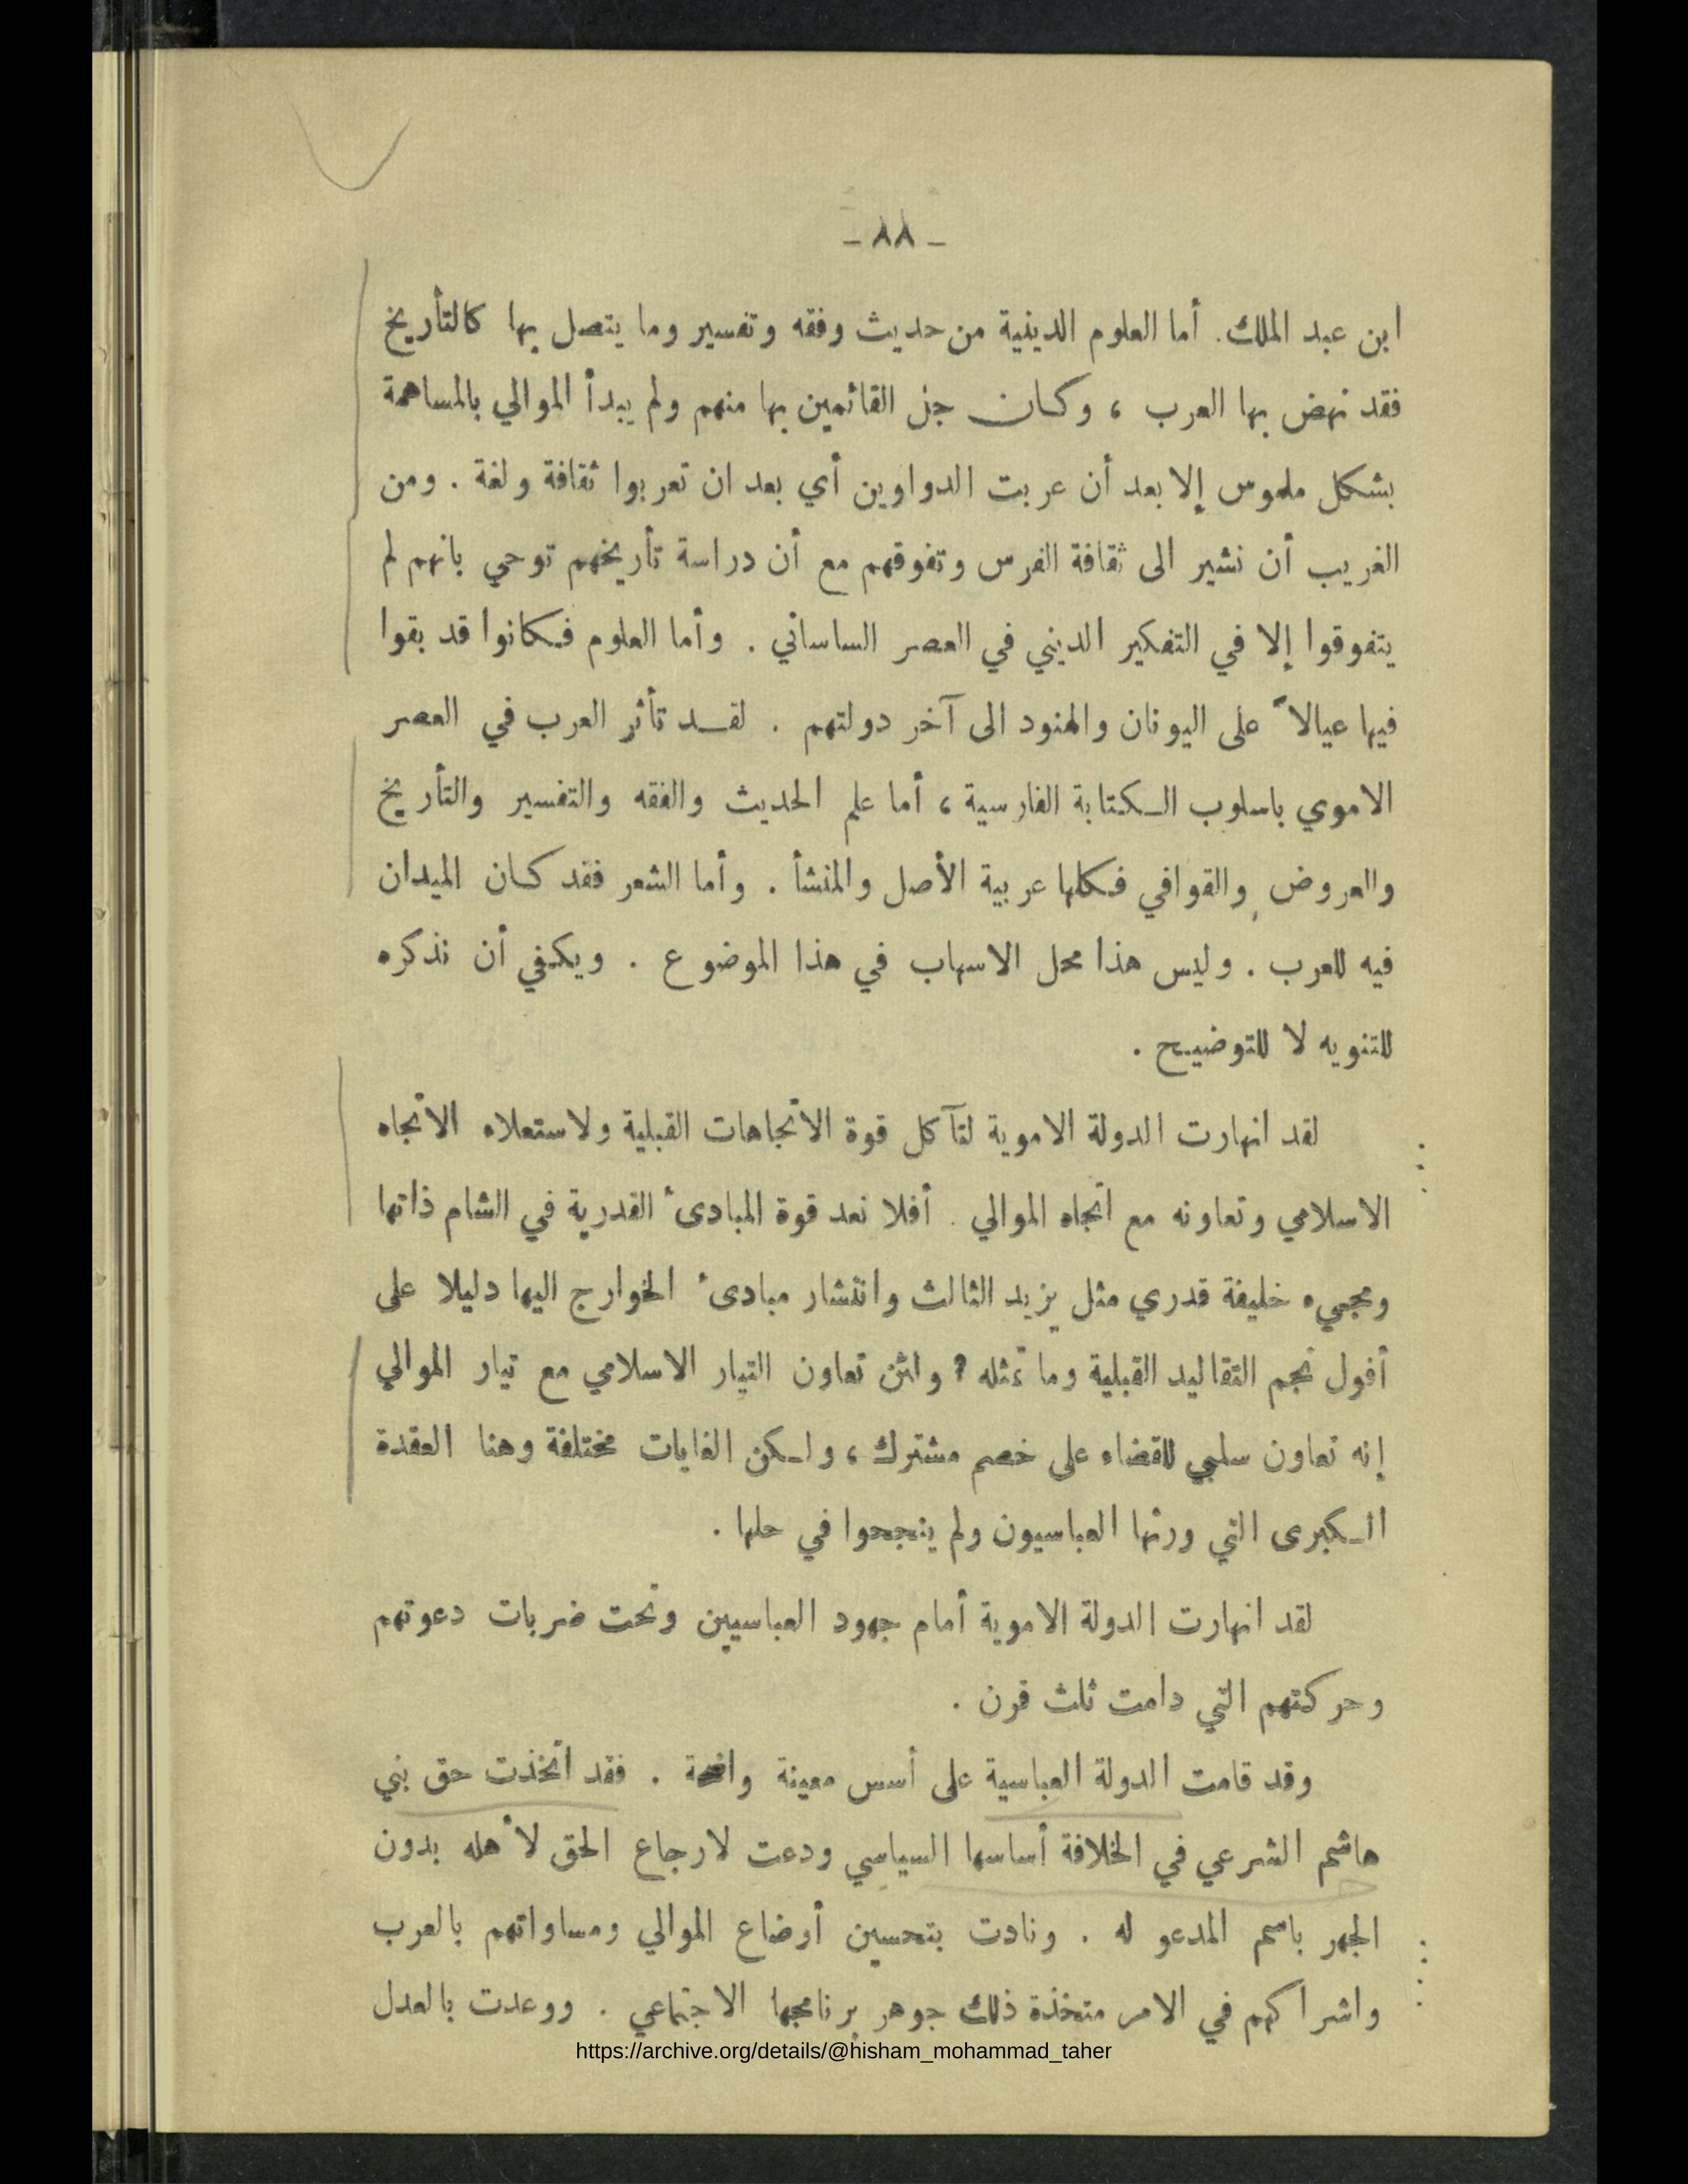 - ٨٨ -
ابن عبد الملك. أما العلوم الدينية من حديث وفقه وتفسير وما يتصل بها كالتأريخ
فقد نهض بها العرب ، وكان جل القائمين بها منهم ولم يبدأ الموالي بالمساهمة
بشكل ملموس إلا بعد أن عربت الدواوين أي بعد ان تعربوا ثقافة ولغة . ومن
الغريب أن نشير الى ثقافة الفرس وتفوقهم مع أن دراسة تأريخهم توحي بانهم لم
يتفوقوا إلا في التفكير الديني في العصر الساساني . وأما العلوم فكانوا قد بقوا
فيها عيالاً على اليونان والهنود الى آخر دولتهم . لقد تأثر العرب في العصر
الاموي باسلوب الكتابة الفارسية ، أما علم الحديث والفقه والتفسير والتأريخ
والعروض والقوافي فكلها عربية الأصل والمنشأ . وأما الشعر فقد كان الميدان
فيه للعرب . وليس هذا محل الاسهاب في هذا الموضوع . ويكفي أن نذكره
للتنويه لا للتوضيح .
لقد انهارت الدولة الاموية لتآكل قوة الاتجاهات القبلية ولاستعلاء الاتجاه
الاسلامي وتعاونه مع اتجاه الموالي . أفلا نعد قوة المبادىء القدرية في الشام ذاتها
ومجيء خليفة قدري مثل يزيد الثالث وانتشار مبادىء الخوارج اليها دليلا على
أفول نجم التقاليد القبلية وما تمثله ؟ ولئن تعاون التيار الاسلامي مع تيار الموالي
إنه تعاون سلبي للقضاء على خصم مشترك ، ولكن الغايات مختلفة وهنا العقدة
الكبرى التي ورثها العباسيون ولم ينجحوا في حلها .
لقد انهارت الدولة الاموية أمام جهود العباسيين وتحت ضربات دعوتهم
وحركتهم التي دامت ثلث قرن .
وقد قامت الدولة العباسية على أسس معينة واضحة . فقد اتخذت حق بني
هاشم الشرعي في الخلافة أساسها السياسي ودعت لارجاع الحق لأهله بدون
الجهر باسم المدعو له . ونادت بتحسين أوضاع الموالي ومساواتهم بالعرب
واشراكهم في الامر متخذة ذلك جوهر برنامجها الاجتماعي . ووعدت بالعدل
https://archive.org/details/@hisham_mohammad_taher